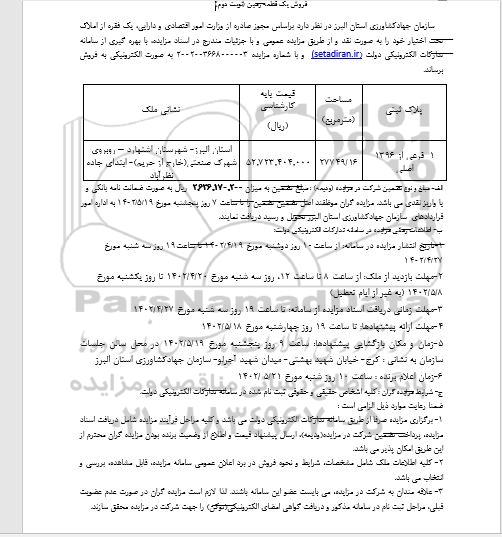 فروش یک قطعه زمین نوبت دوم
سازمان جهادکشاورزی استان البرز در نظر دارد براساس مجوز صادره از وزارت امور اقتصادی و دارایی، یک فقره از املاک
تحت اختیار خود را به صورت نقد و از طریق مزایده عمومی و با جزئیات مندرج در اسناد مزایده، با بهره گیری از سامانه
تدارکات الکترونیکی دولت (setadiran.ir) و با شماره مزایده ۲۰۰۲۰۰۳۶۶۸۰۰۰۰۰۳ به صورت الکترونیکی به فروش
برساند.
پلاک ثبتی
مساحت (مترمربع)
قیمت پایه کارشناسی (ریال)
نشانی ملک
۱ فرعی از ۱۳۹۶ اصلی
۲۷۷۴۹/۱۶
۵۲,۷۲۳,۴۰۴,۰۰۰
استان البرز- شهرستان اشتهارد – روبروی
شهرک صنعتی(خارج از حریم)- ابتدای جاده
نظرآباد
الف- مبلغ و نوع تضمین شرکت در مزایده (ودیعه) : مبلغ تضمین به میزان ریال به صورت ضمانت نامه بانکی و
یا واریز نقدی می باشد. مزایده گران موظفند اصل تضمین را تا ساعت ۷ روز پنجشنبه مورخ ۱۴۰۲/۵/۱۹ به اداره امور
قراردادهای سازمان جهادکشاورزی استان البرز تحویل و رسید دریافت نمایند.
ب- اطلاعات زمانی مزایده در سامانه تدارکات الکترونیکی دولت:
۱-تاریخ انتشار مزایده در سامانه: از ساعت ۱۰ روز دوشنبه مورخ ۱۴۰۲/۴/۱۹ تا ساعت ۱۹ روز سه شنبه مورخ
۱۴۰۲/۴/۲۷
۲-مهلت بازدید از ملک: از ساعت ۸ تا ساعت ۱۲، روز سه شنبه مورخ ۱۴۰۲/۴/۲۰ تا روز یکشنبه مورخ
۱۴۰۲/۵/۸ (به غیر از ایام تعطیل)
۳-مهلت زمانی دریافت اسناد مزایده از سامانه: تا ساعت ۱۹ روز سه شنبه مورخ ۱۴۰۲/۴/۲۷
۴-مهلت ارائه پیشنهادها: تا ساعت ۱۹ روز چهارشنبه مورخ ۱۴۰۲/۵/۱۸
۵-زمان و مکان بازگشایی پیشنهادها: ساعت ۹ روز پنجشنبه مورخ ۱۴۰۲/۵/۱۹ در محل سالن جلسات
سازمان به نشانی : کرج- خیابان شهید بهشتی- میدان شهید آجرلو- سازمان جهادکشاورزی استان البرز
۶-زمان اعلام برنده : ساعت ۱۰ روز شنبه مورخ ۱۴۰۲/۵/۲۱
ج- شرایط مزایده گران : کلیه اشخاص حقیقی و حقوقی ثبت نام شده در سامانه تدارکات الکترونیکی دولت.
ضمنا رعایت موارد ذیل الزامی است :
۱- برگزاری مزایده صرفا از طریق سامانه تدارکات الکترونیکی دولت می باشد و کلیه مراحل فرآیند مزایده شامل دریافت اسناد
مزایده، پرداخت تضمین شرکت در مزایده(ودیعه)، ارسال پیشنهاد قیمت و اطلاع از وضعیت برنده بودن مزایده گران محترم از
این طریق امکان پذیر می باشد.
۲- کلیه اطلاعات ملک شامل مشخصات، شرایط و نحوه فروش در برد اعلان عمومی سامانه مزایده، قابل مشاهده، بررسی و
انتخاب می باشد.
۳- علاقه مندان به شرکت در مزایده، می بایست عضو این سامانه باشند. لذا لازم است مزایده گران در صورت عدم عضویت
قبلی، مراحل ثبت نام در سامانه مذکور و دریافت گواهی امضای الکترونیکی(توکن) را جهت شرکت در مزایده محقق سازند.